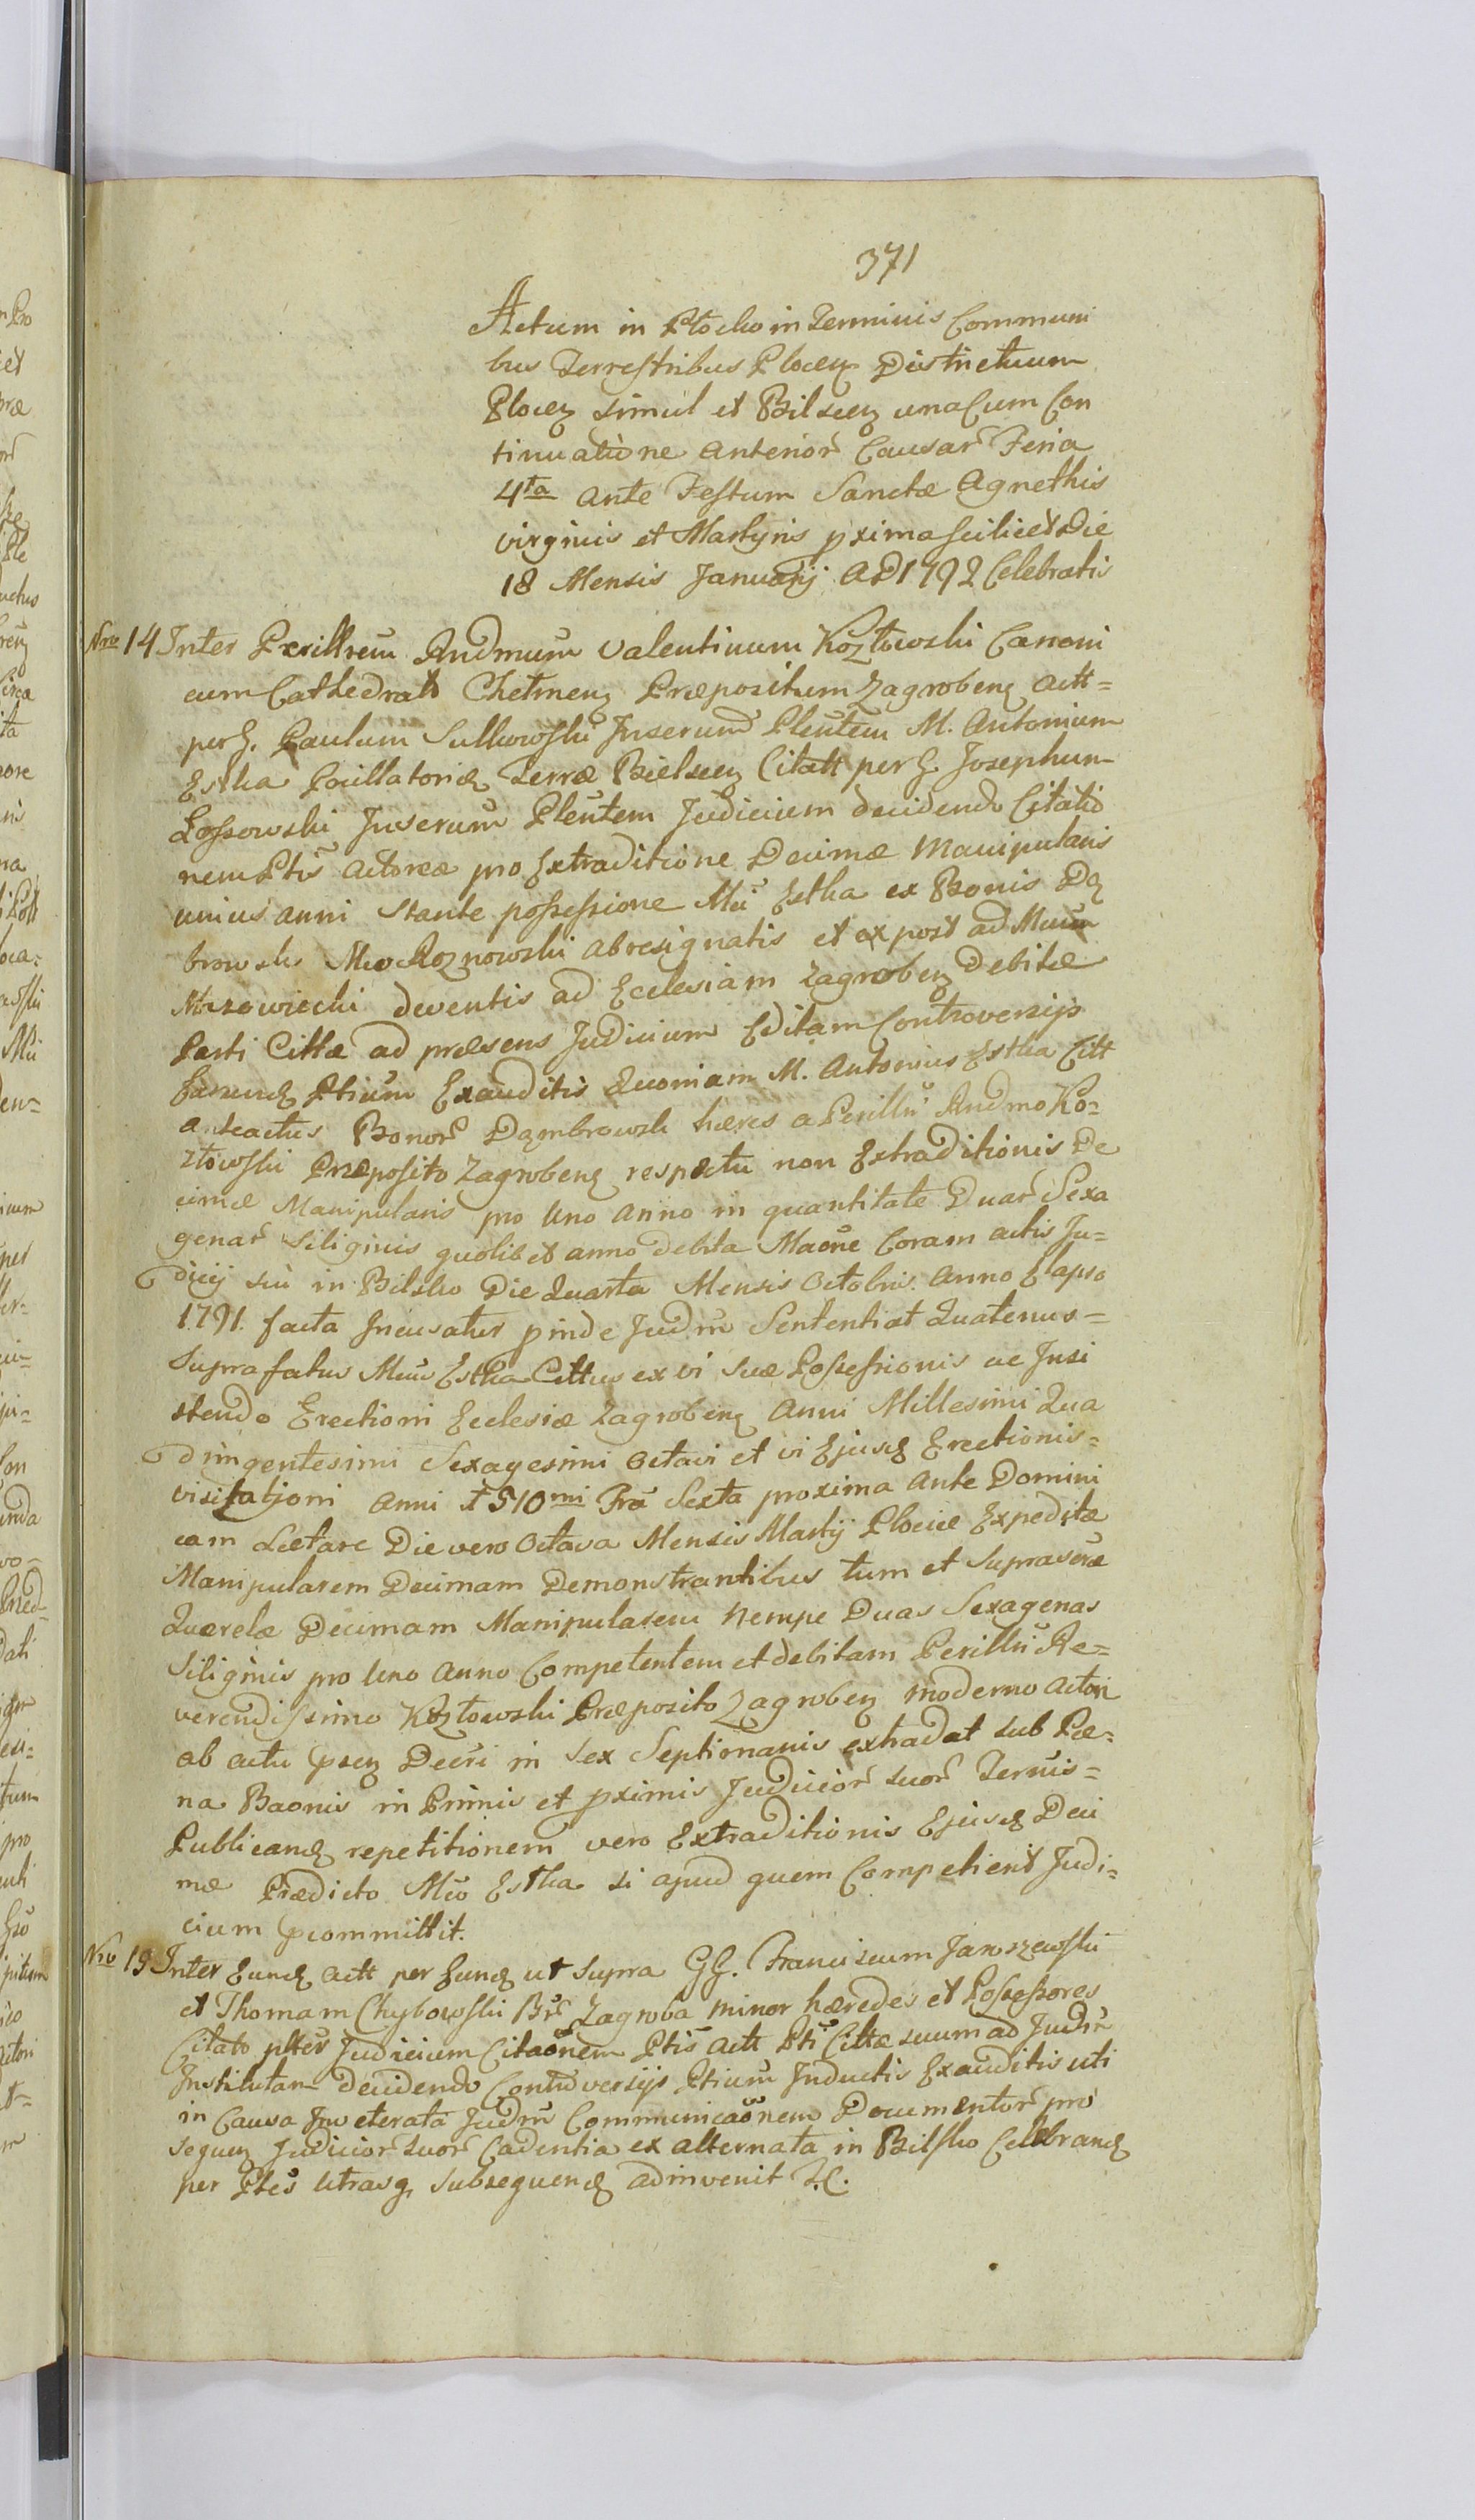 371
Actum in Płocko in Terminis Communi
bus Terrestribus Plocen Districtuum
Plocen simul et Bilscen una Cum Con
tinuatione anterior Causar Feria
4ta ante Festum Sanctæ Agnethis
virginis et Martyris pxima scilicet Die
18 Mensis Januarij AD 1792 Celebratis
Nro 14 Inter Perillrem Andmum Valentinum Kozłowski Canoni
cum Cathedral Chelmen Præpositum Zagroben actt=
per G. Paulum Sulkowski Juserum Plentem M. Antonium
Estka Pocillatorid Terræ Bielscen Citatt per G. Josephum
Lossowski Juserum Plentem Judicium decidendo Citatio
nem Ptis actoreæ pro Extraditione Decimæ Manipularis
unius anni stante possessione Mci Estka ex Bonis Dą
browsk Mco Roznowski abresignatis et expost ad Mcum
Mszowiecki deventis ad Ecclesiam Zagroben Debitæ
Parti Cittæ ad præsens Judicium Editam Controversijs
Ptium Exauditis Quoniam M. Antonius Estka Citt
anteactus Bonor Dąmbrowsk hæres a Perillri Andmo Ko=
złowski Præposito Zagroben respectu non Extraditionis De
cimæ Manipularis pro Uno anno in quantitate Duar Sexa
genar siliginis quolibet anno debita Maone Coram actis Ju=
dicij sui in Bilsko Die Quarta Mensis Octobris anno Elapso
1791. facta Incusatur pinde Judm Sententiat Quatenus=
Suprafatus Mcus Estka Cittus ex vi suæ Possessionis ac Insi
stendo Erectioni Ecclesiæ Zagroben Anni Millesimi Qua
dringentesimi Sexagesimi Octavi et vi Ejusd Erectionis=
visitationi anni 1510mi Fra Sexta proxima ante Domini
cam Lætare Die vero Octava Mensis Martij Plociæ Expeditæ
Manipularem Decimam Demonstrantibus tum et Suprascræ
Querelæ Decimam Manipularem Nempe Duas Sexagenas
Siliginis pro Uno anno Competentem et debitam Perillri Re=
verendissimo Kozłowski Præposito Zagroben moderno actori
ab actu psen Decri in Sex Septimanis extradat sub Pœ=
na Baonis in Primis et pximis Judicior suor Ternis=
Publicand repetitionem vero Extraditionis Ejusd Deci
mæ Prædicto Mco Estka si apud quem Competierit Judi=
cium pcommittit.
Nro 15 Inter Eund actt per Eund ut supra GG. Franciscum Jaroszewski
et Thomam Chybowski Br Zagroba minor hæredes et Possessores
Citato pltes Judicium Citaonem Ptis actt Pti Cittæ suum ad Judm
Institutam decidendo Controversijs Ptium Inductis Exauditis uti
in Causa Inveterata Judm Communicaonem Documentor pro
sequen Judicior suor Cadentia ex alternata in Bilsko Celebrand
per Ptes Utrasq subsequend adinvenit